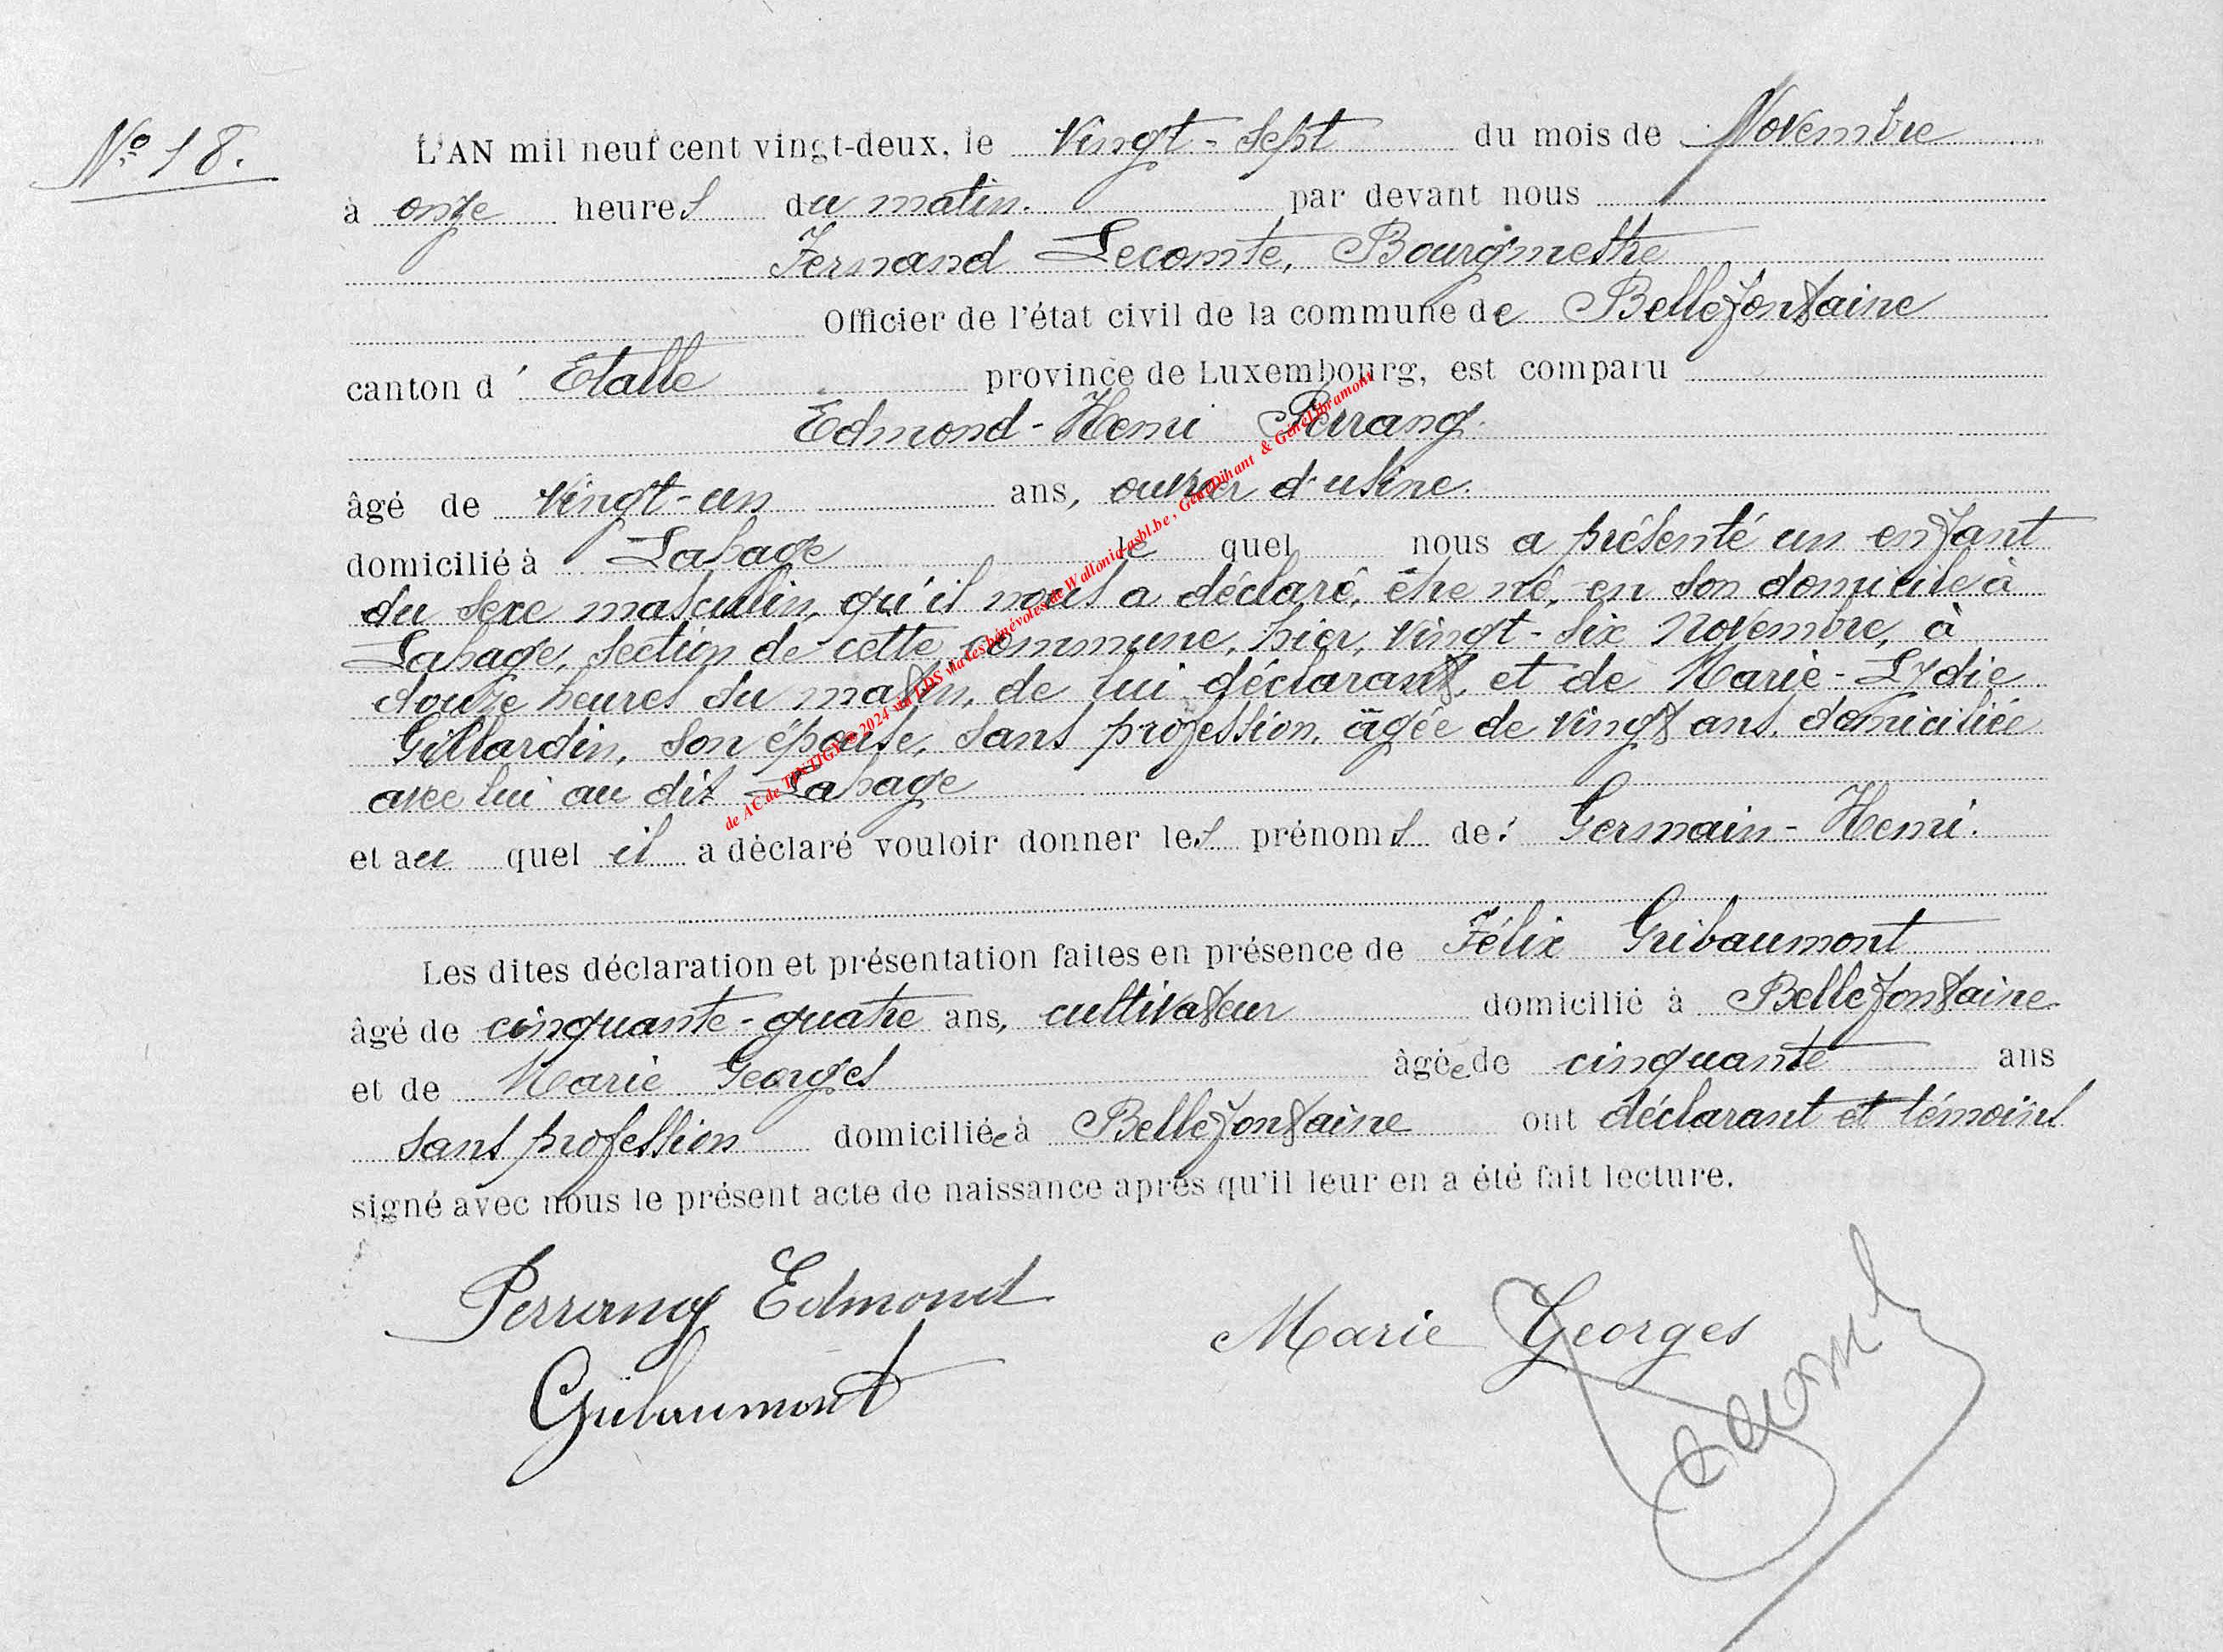 N° 18.
L'AN mil neuf cent vingt-deux, le vingt-sept du mois de Novembre
à onze heures du matin. par devant nous
Fernand Lecomte, Bourgmestre
Officier de l'état civil de la commune de Bellefontaine
canton d' Etalle province de Luxembourg, est comparu
Edmond-Henri Perrang.
âgé de vingt-un ans, ouvrier d'usine.
domicilié à Lahage le quel nous a présenté un enfant
du sexe masculin, qu'il nous a déclaré, être né, en son domicile à
Lahage, section de cette commune, hier, vingt-six Novembre, à
douze heures du matin, de lui déclarant, et de Marie-Lydie
Gillardin, son épouse, sans profession, âgée de vingt ans, domiciliée
avec lui au dit Lahage
et au quel il a déclaré vouloir donner les prénoms de: Germain-Henri.
Les dites déclaration et présentation faites en présence de Félix Gribaumont
âgé de cinquante-quatre ans, cultivateur domicilié à Bellefontaine
et de Marie Georges âgée de cinquante ans
sans profession domiciliée à Bellefontaine ont déclarant et témoins
signé avec nous le présent acte de naissance après qu'il leur en a été fait lecture.
Perrang Edmond
Marie Georges
Gribaumont
de AC de TINTIGNY © 2024 via LDS via les bénévoles de Wallonia-asbl.be, GénéDinant & GénéLibramont